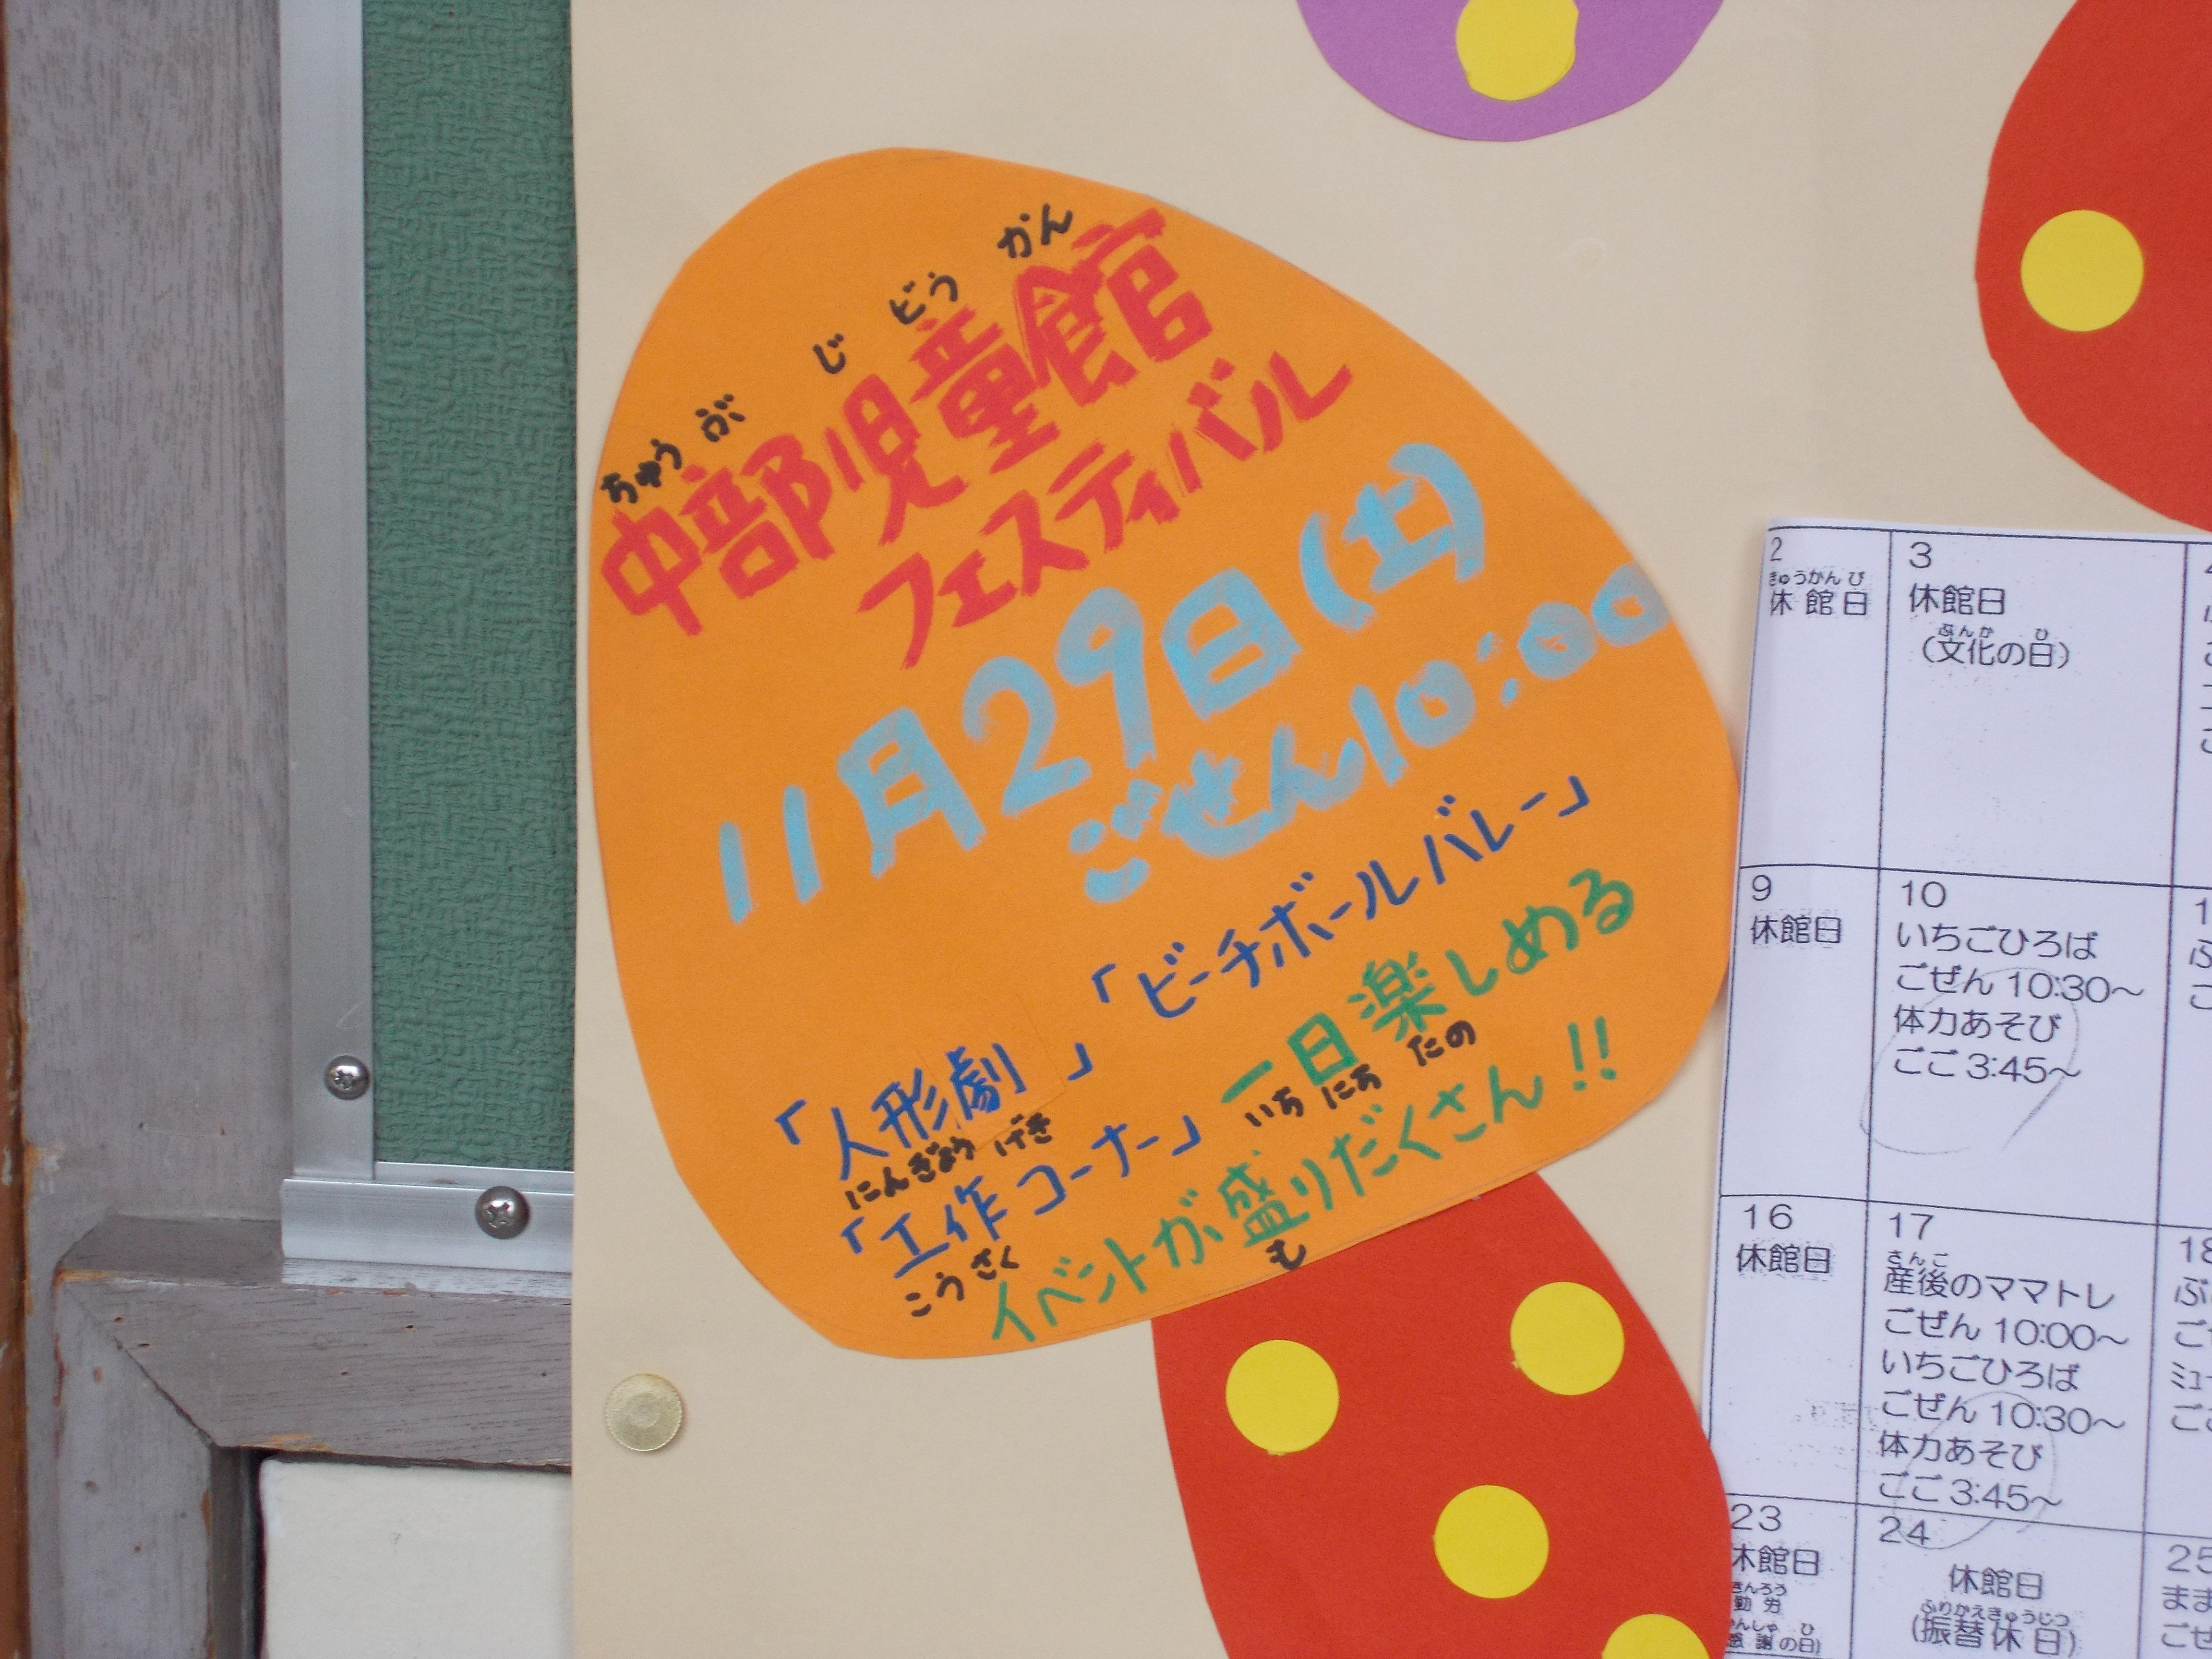 ちゅう ぶ じ どう かん
中部児童館
フェスティバル
11月29日(土)
ごぜん10:00
「人形劇」「ビーチボールバレー」
にんぎょう げき
「工作コーナー」一日楽しめる
こう さく いち にち たの
イベントが盛りだくさん!!
も
2
きゅうかん び
休館日
3
休館日
ぶんか ひ
(文化の日)
9
休館日
10
いちごひろば
ごぜん 10:30～
体力あそび
ごご 3:45～
16
休館日
17
さんご
産後のママトレ
ごぜん 10:00～
いちごひろば
ごぜん 10:30～
体力あそび
ごご 3:45～
18
23
休館日
きんろう
勤労
かんしゃ ひ
感謝の日)
24
休館日
ふりかえきゅうじつ
(振替休日)
25